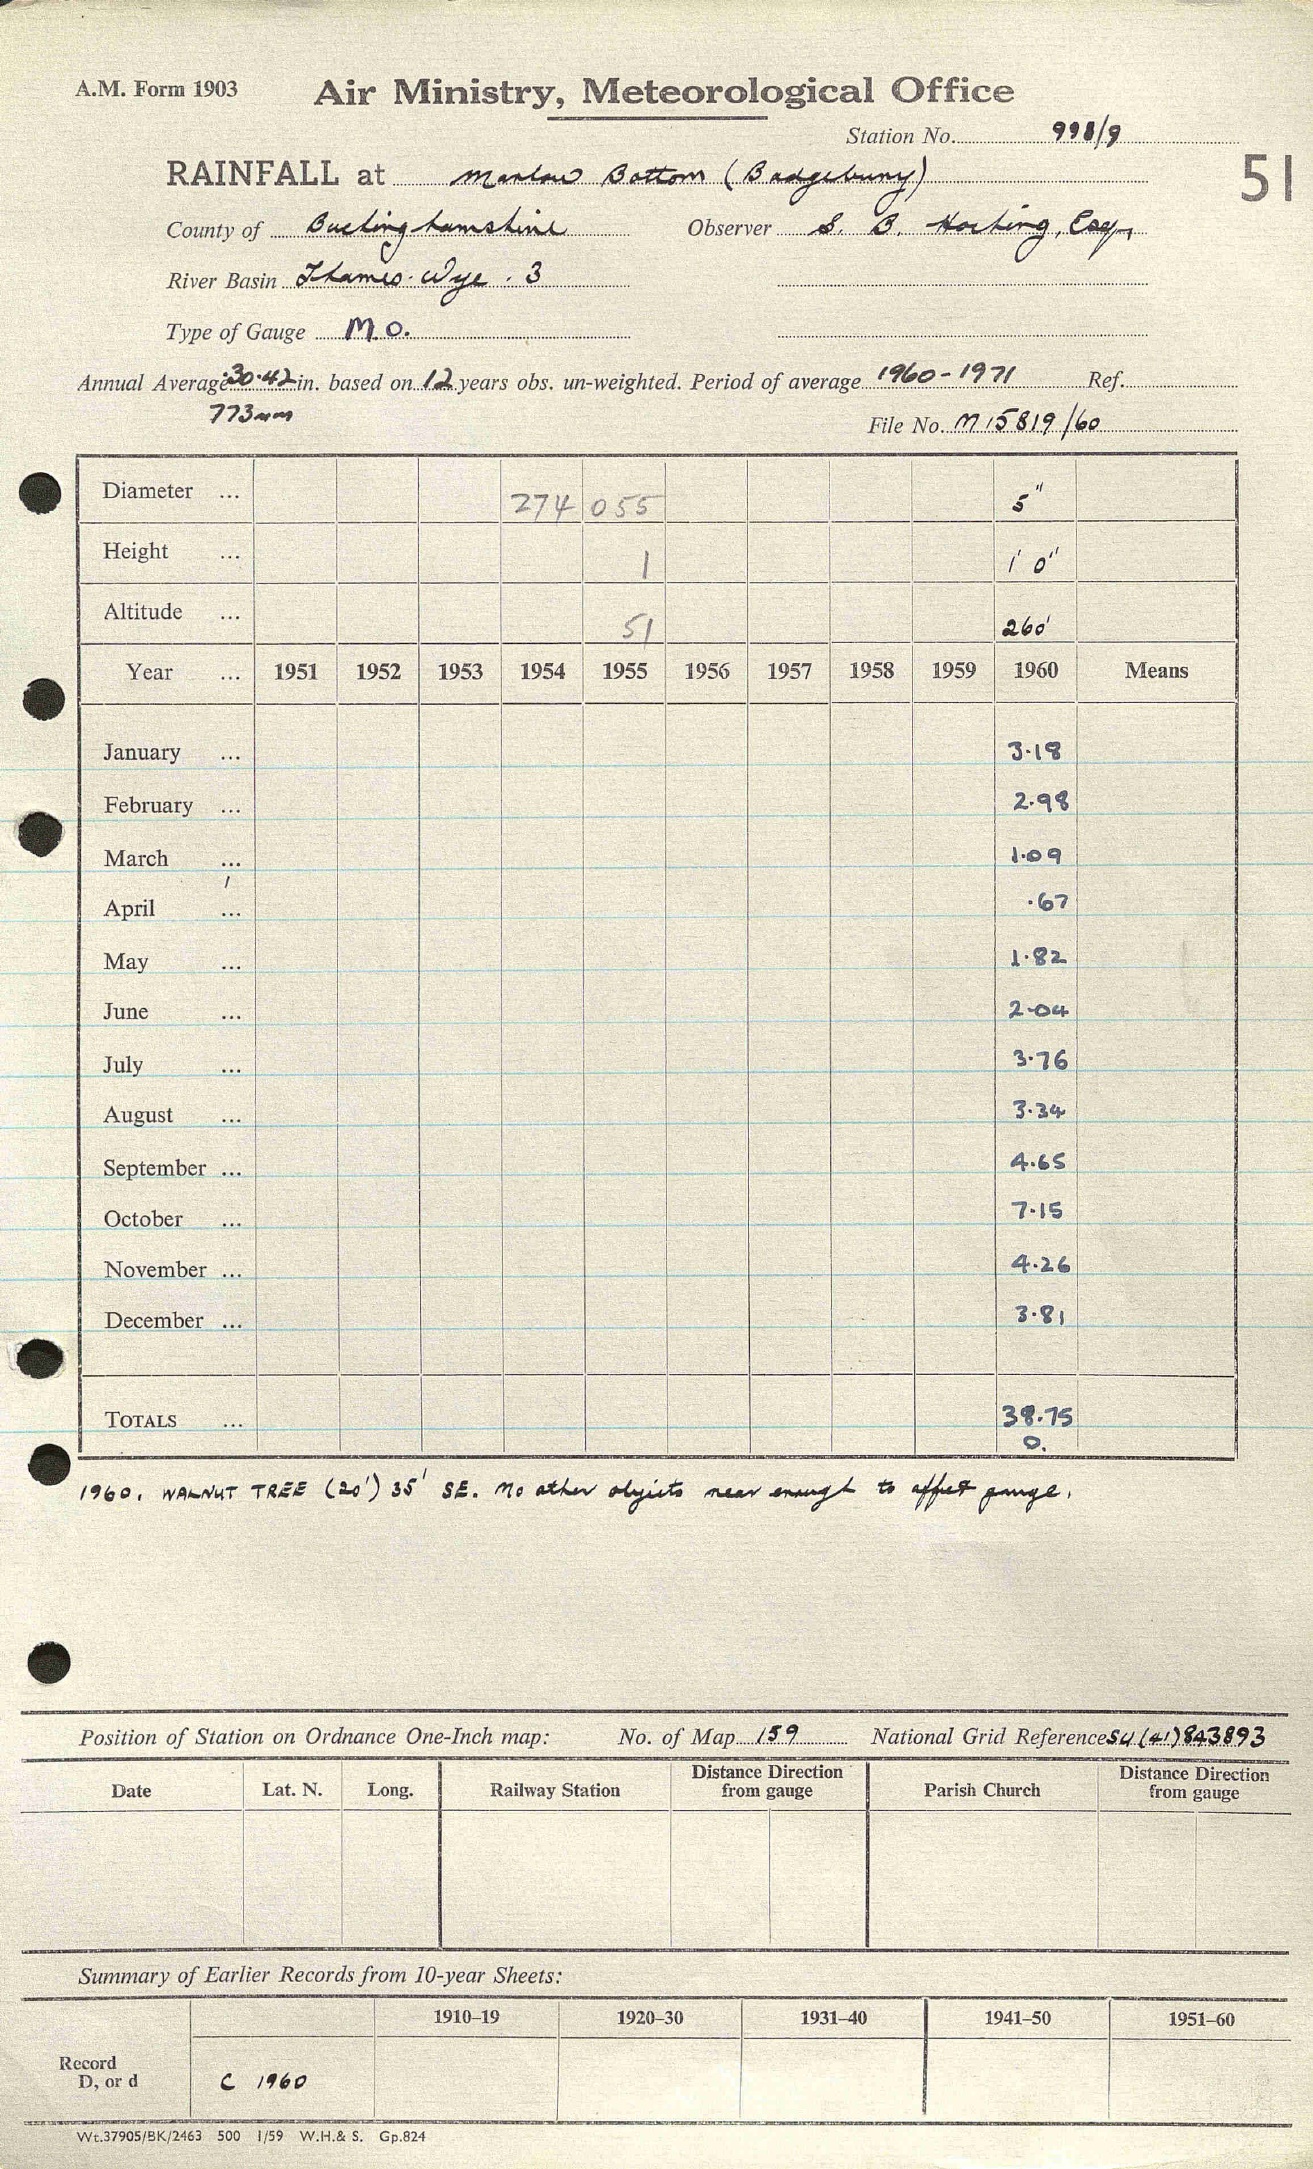 A.M. Form 1903 Air Ministry, Meteorological Office
Station No. 998/9
51
RAINFALL at Marlow Bottom (Badgebury)
County of Buckinghamshire Observer S. B. Hocking, Esq.,
River Basin Thames. Wye . 3
Type of Gauge M.O.
Annual Average 30.42 in. based on 12 years obs. un-weighted. Period of average 1960-1971 Ref.
773mm
File No. M 15819/60
Diameter ... 274 055 5"
Height ... 1 1' 0"
Altitude ... 51 260'
Year ... 1951 1952 1953 1954 1955 1956 1957 1958 1959 1960 Means
January ... 3.18
February ... 2.98
March ... 1.09
April ... .67
May ... 1.82
June ... 2.04
July ... 3.76
August ... 3.34
September ... 4.65
October ... 7.15
November ... 4.26
December ... 3.81
TOTALS ... 38.75
0.
1960. WALNUT TREE (20') 35' SE. No other objects near enough to affect gauge.
Position of Station on Ordnance One-Inch map: No. of Map 159 National Grid Reference SU (41) 843893
Date Lat. N. Long. Railway Station Distance Direction from gauge Parish Church Distance Direction from gauge
Summary of Earlier Records from 10-year Sheets:
1910–19 1920–30 1931–40 1941–50 1951–60
Record
D, or d C 1960
Wt.37905/BK/2463 500 1/59 W.H.& S. Gp.824